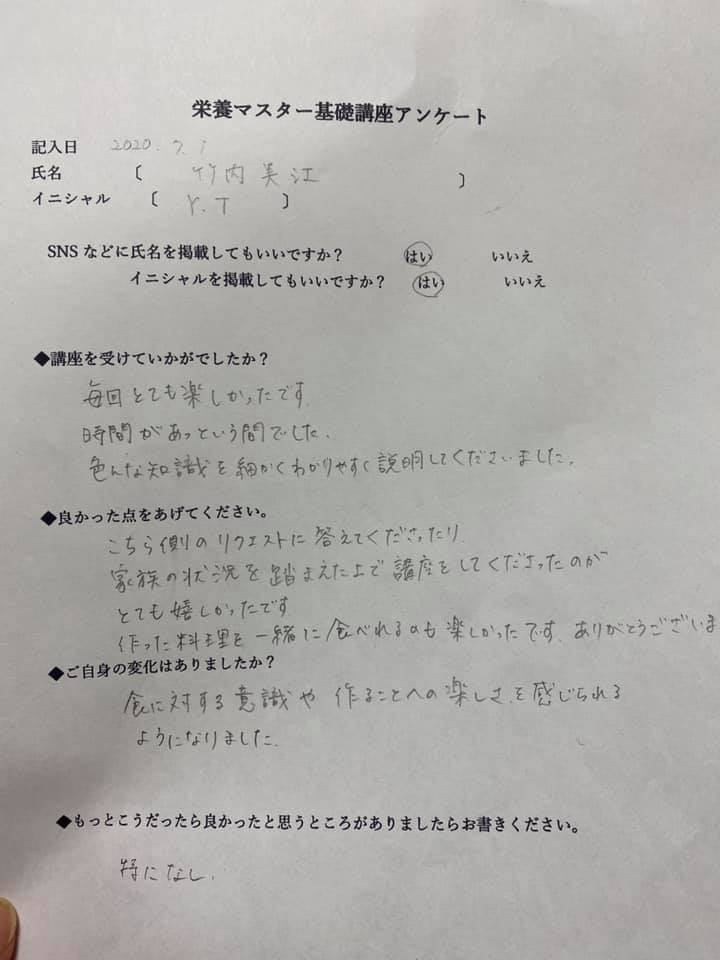 栄養マスター基礎講座アンケート
記入日 2020.7.1
氏名 〔 竹内美江 〕
イニシャル 〔 Y.T 〕
SNSなどに氏名を掲載してもいいですか? はい いいえ
イニシャルを掲載してもいいですか? はい いいえ
◆講座を受けていかがでしたか?
毎回とても楽しかったです
時間があっという間でした.
色んな知識を細かくわかりやすく説明してくださいました.
◆良かった点をあげてください。
こちら側のリクエストに答えてくださったり
家族の状況を踏まえた上で講座をしてくださったのが
とても嬉しかったです
作った料理を一緒に食べれるのも楽しかったです.ありがとうございま
◆ご自身の変化はありましたか?
食に対する意識や作ることへの楽しさを感じられる
ようになりました.
◆もっとこうだったら良かったと思うところがありましたらお書きください。
特になし.